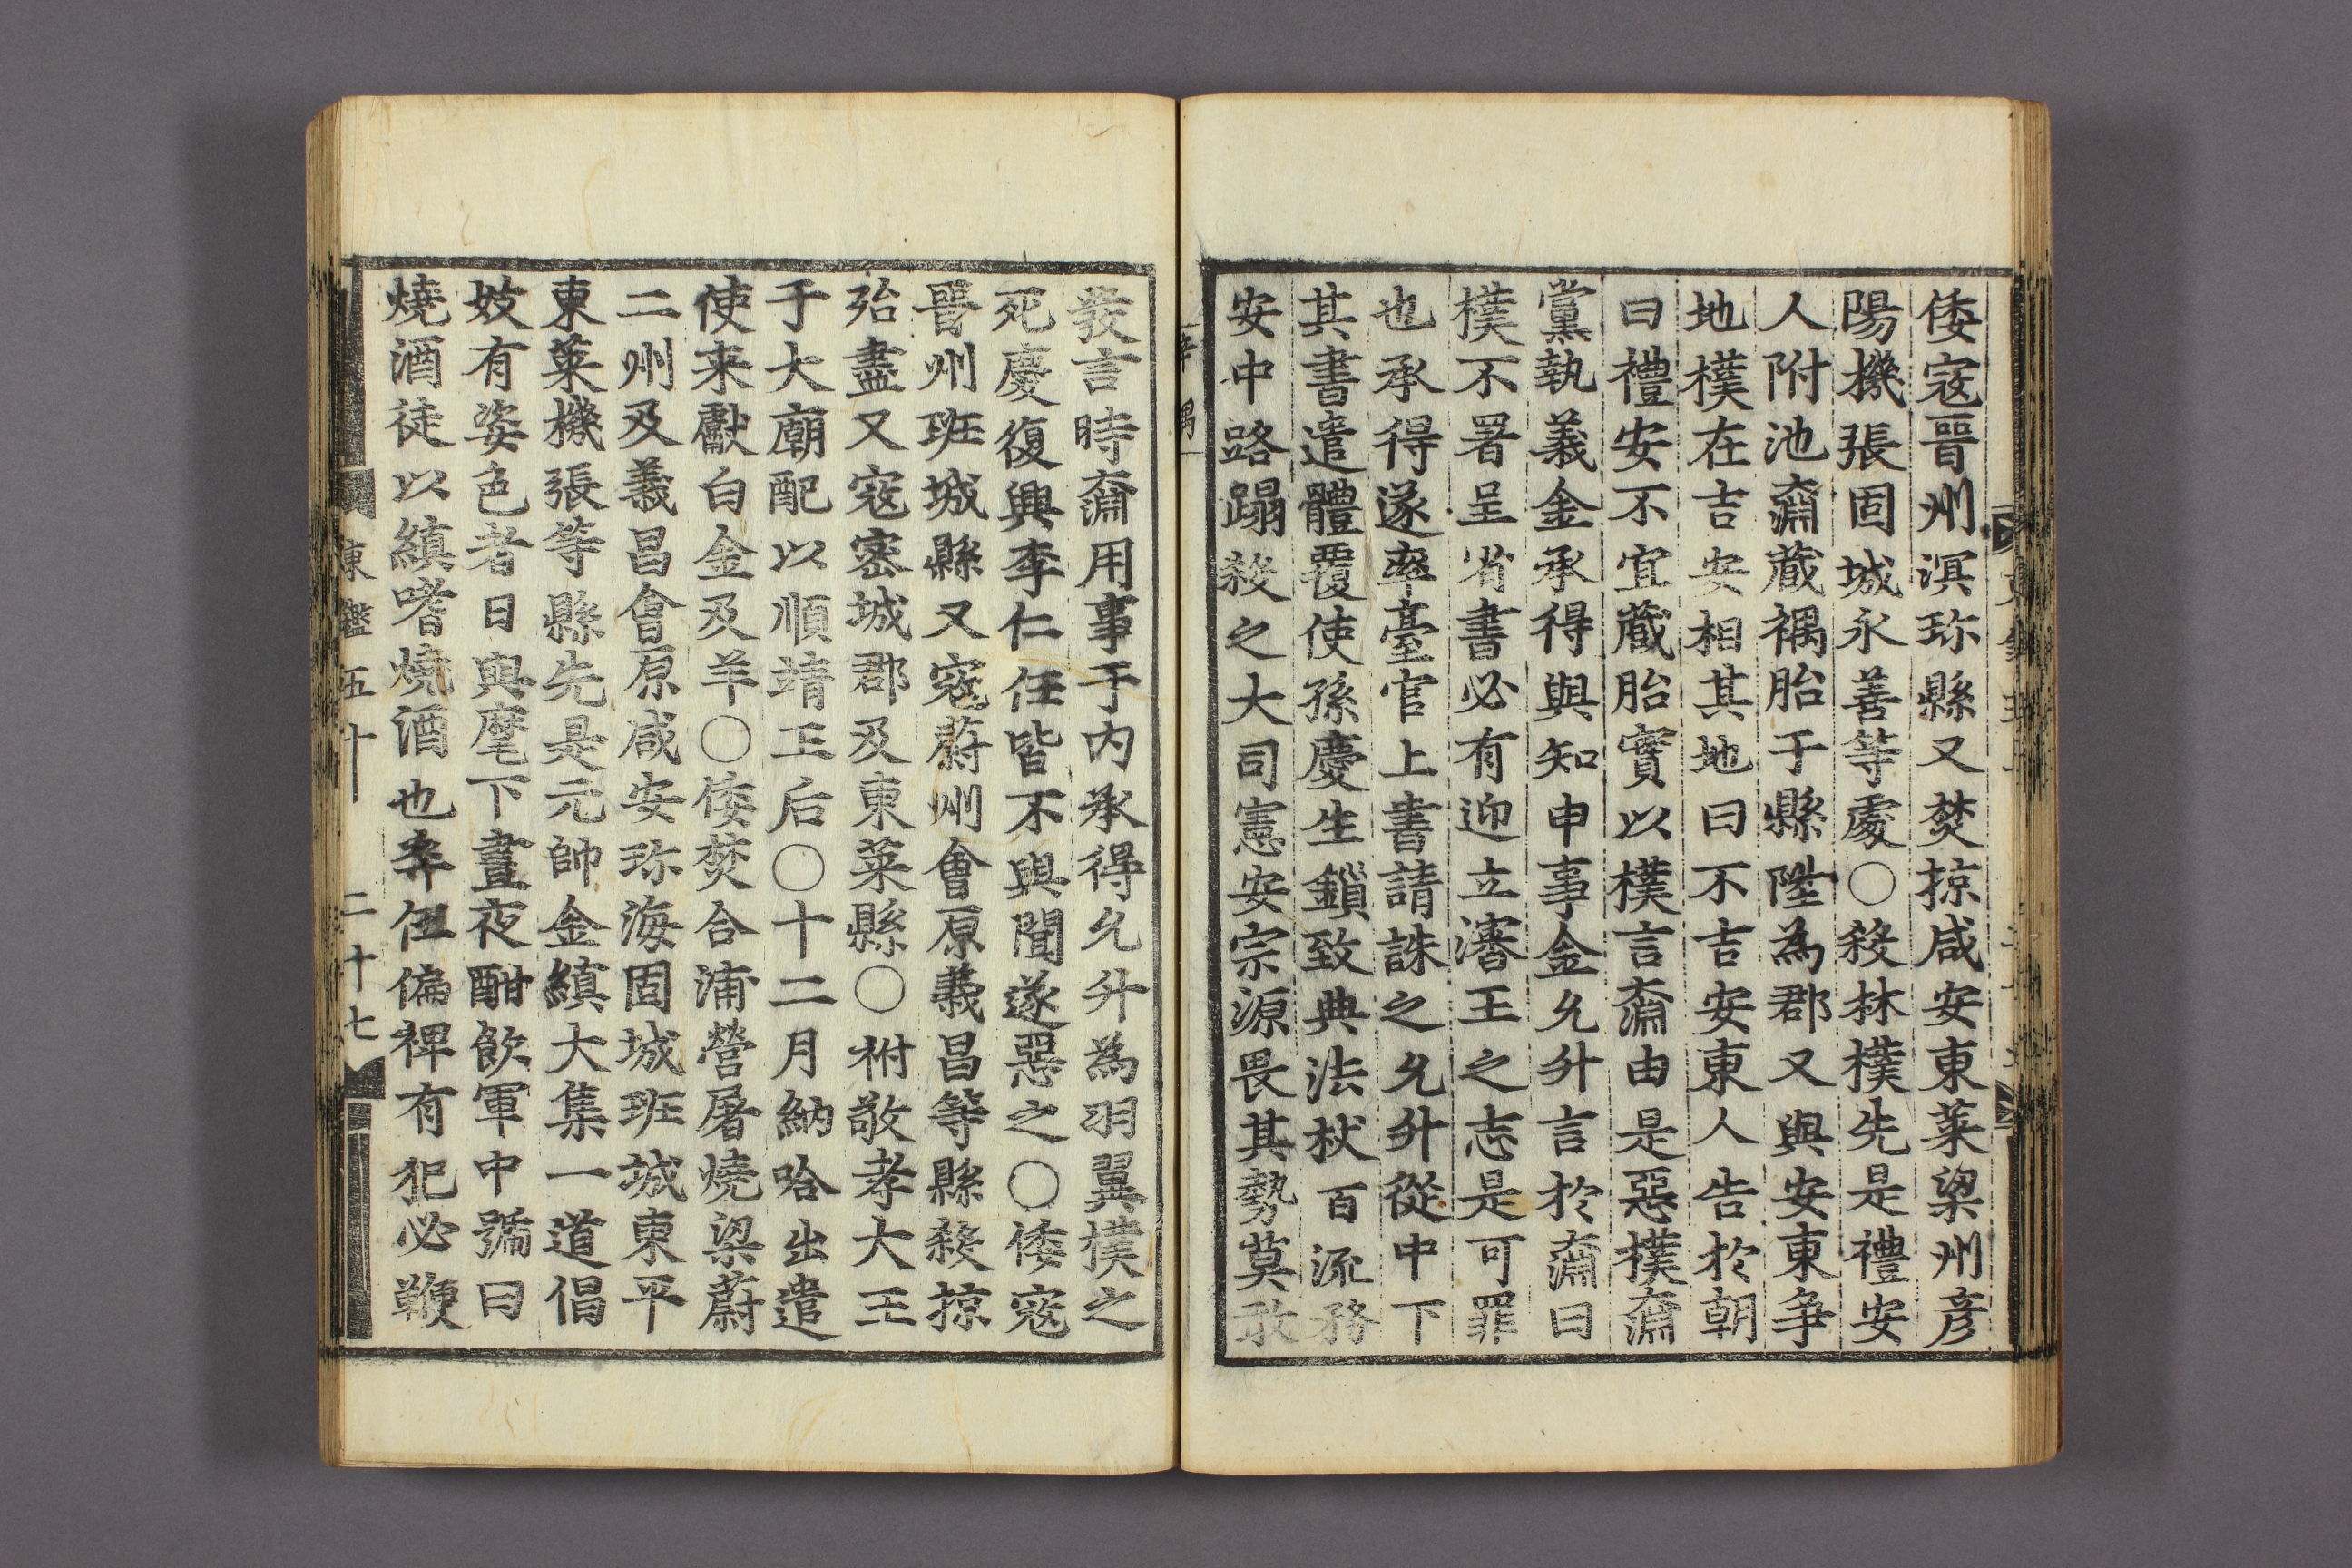 倭寇晉州溟珎縣又焚掠咸安東萊梁州彦
陽機張固城永善等處○殺林樸先是禮安
人附池奫藏禑胎于縣陞為郡又與安東争
地樸在吉安相其地曰不吉安東人告於朝
曰禮安不宜藏胎實以樸言奫由是惡樸奫
黨執義金承得與知申事金允升言於奫曰
樸不署呈省書必有迎立瀋王之志是可罪
也承得遂率臺官上書請誅之允升從中下
其書遣體覆使孫慶生鎖致典法杖百流務
安中路蹋殺之大司憲安宗源畏其勢莫敢
辛禑
發言時奫用事于内承得允升為羽翼樸之
死慶復興李仁任皆不與聞遂惡之○倭寇
晉州班城縣又寇蔚州會原義昌等縣殺掠
殆盡又寇密城郡及東萊縣○祔敬孝大王
于大廟配以順靖王后○十二月納哈出遣
使来獻白金及羊○倭焚合浦營屠燒梁蔚
二州及義昌會原咸安珎海固城班城東平
東萊機張等縣先是元帥金縝大集一道倡
妓有姿色者日與麾下晝夜酣飲軍中號曰
燒酒徒以縝嗜燒酒也卒伍偏裨有犯必鞭
東鑑五十 二十七